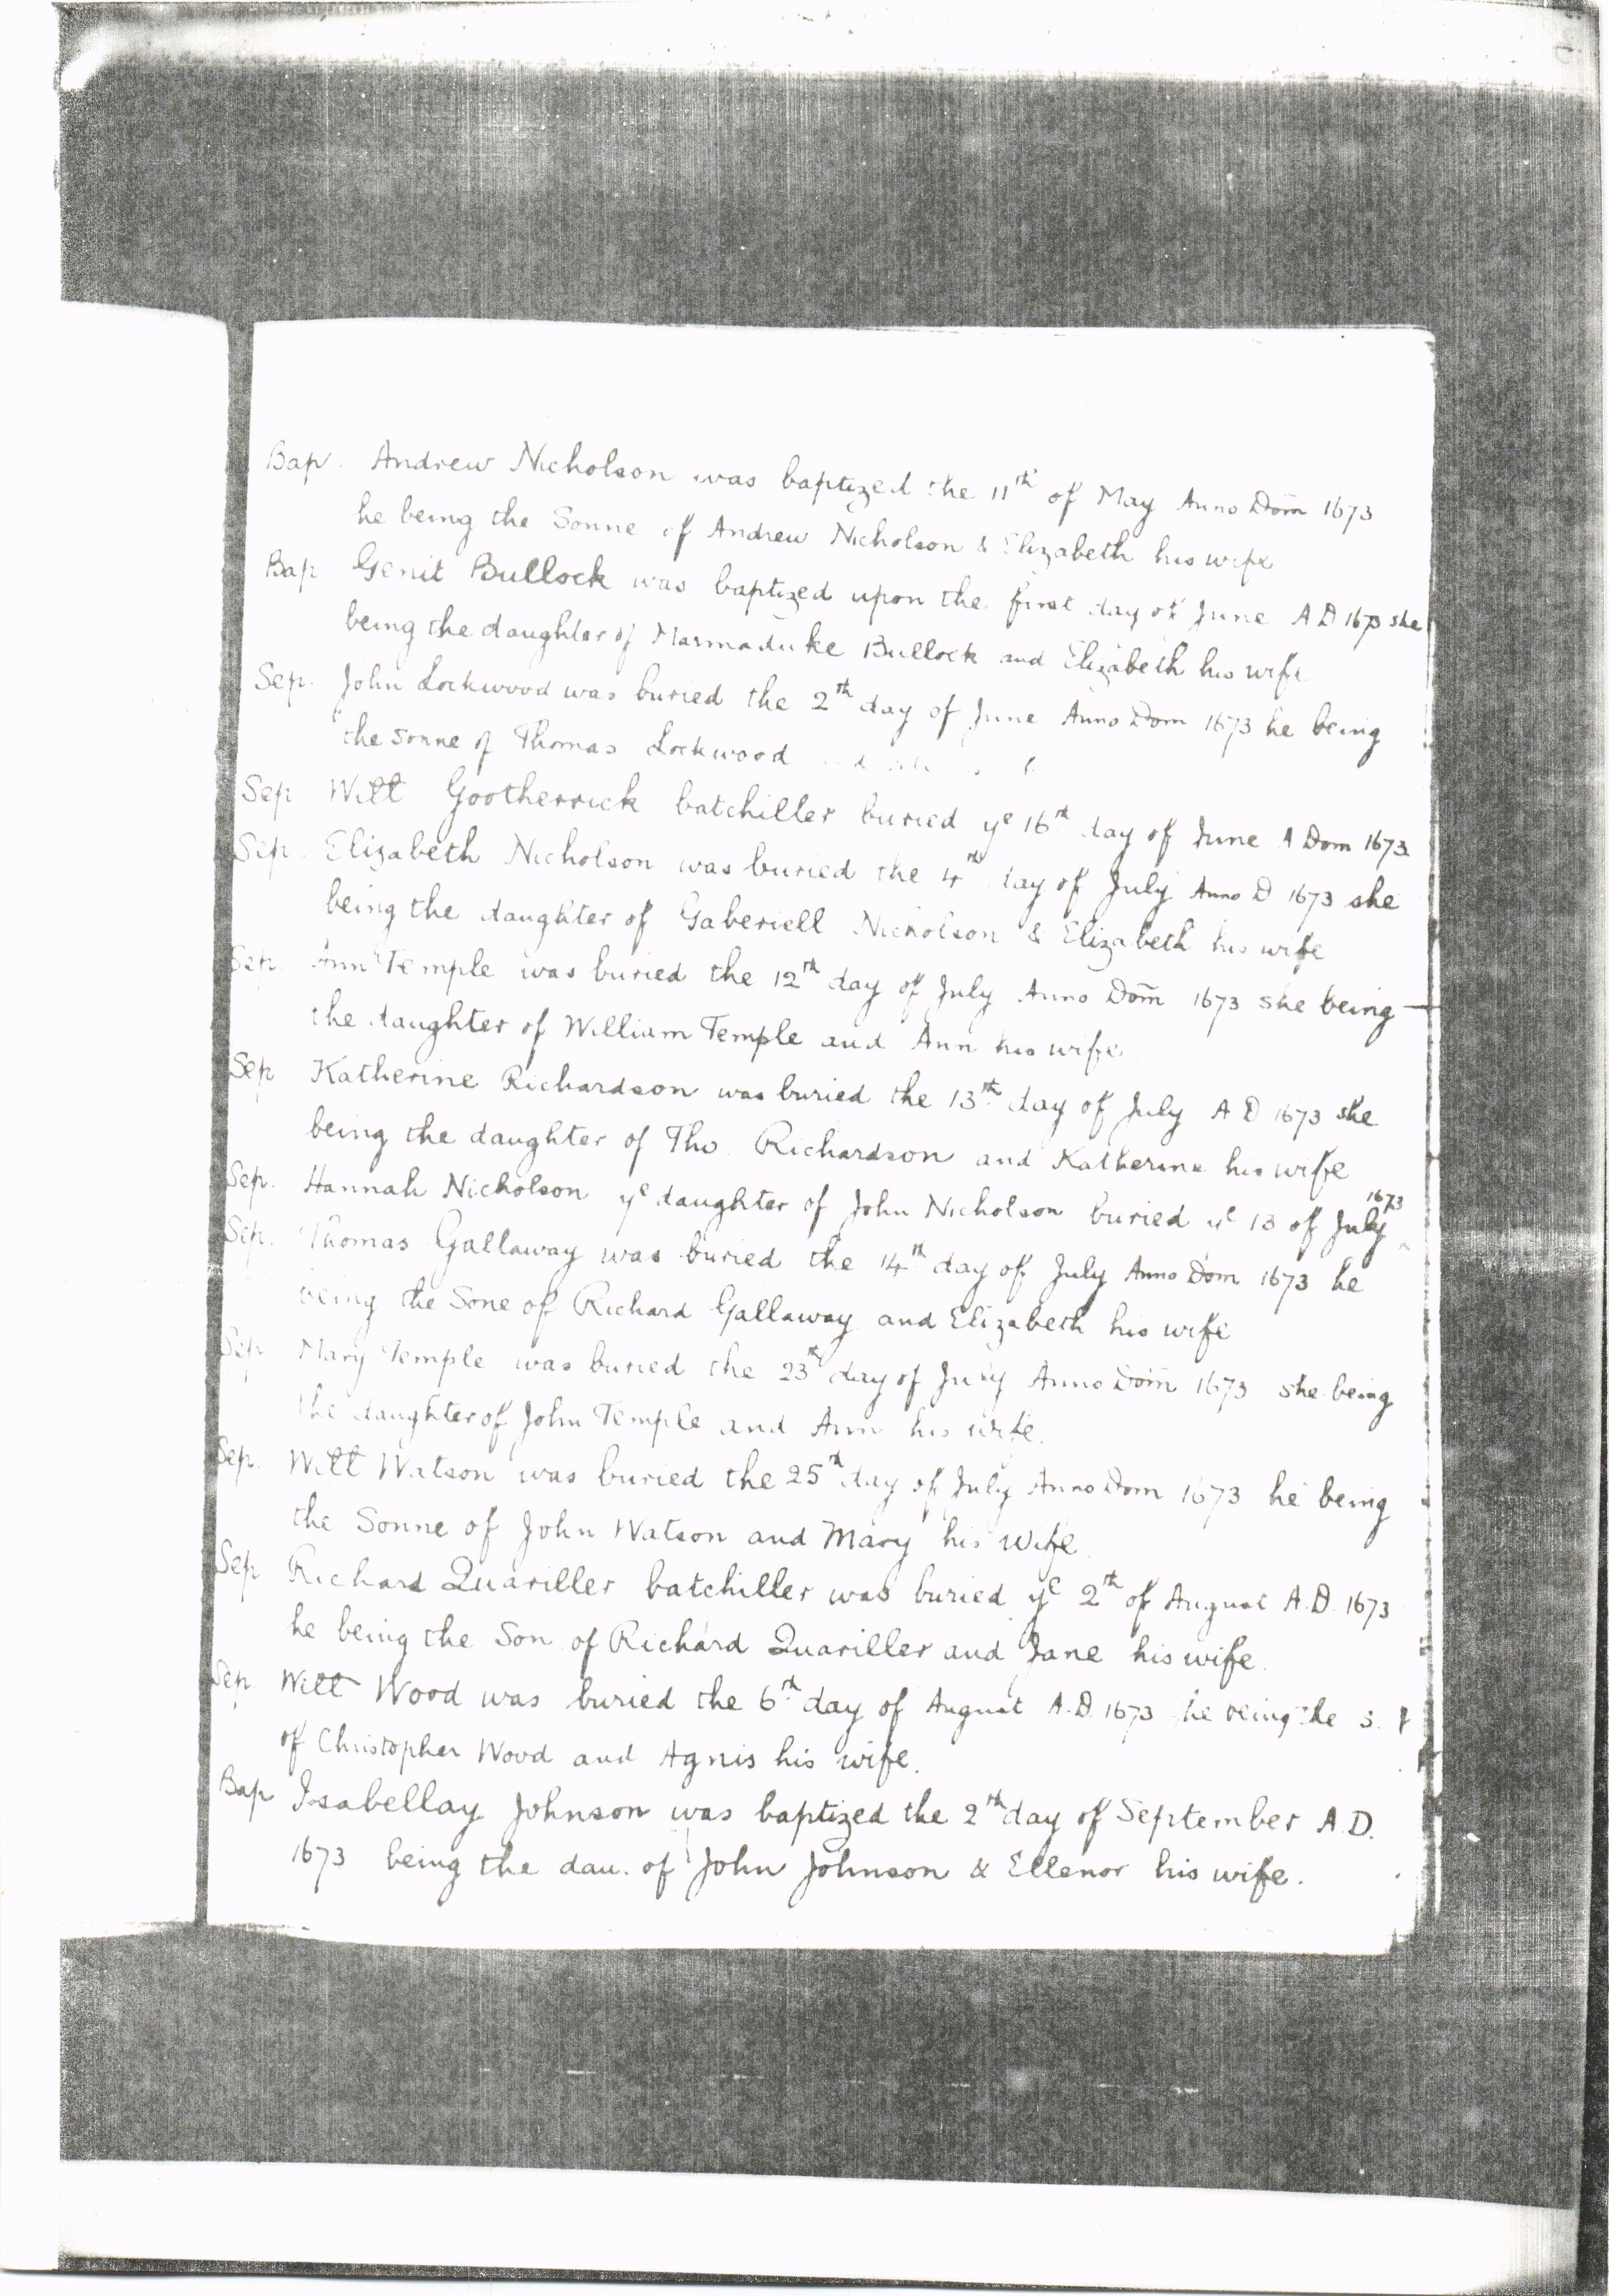 Bap. Andrew Nicholson was baptized the 11th of May Anno Dom̄ 1673
he being the Sonne of Andrew Nicholson & Elizabeth his wife
Bap. Genit Bullock was baptized upon the first day of June A D 1673 she
being the daughter of Marmaduke Bullock and Elizabeth his wife
Sep. John Lockwood was buried the 2th day of June Anno Dom 1673 he being
the sonne of Thomas Lockwood
Sep Witt Gootherrick batchiller buried ye 16th day of June A Dom 1673.
Sep. Elizabeth Nicholson was buried the 4th day of July Anno D 1673 she
being the daughter of Gaberiell Nicholson & Elizabeth his wife
Sep. Ann Temple was buried the 12th day of July Anno Dom̄ 1673 she being
the daughter of William Temple and Ann his wife
Sep Katherine Richardson was buried the 13th day of July A D 1673 she
being the daughter of Tho. Richardson and Katherine his wife
Sep. Hannah Nicholson ye daughter of John Nicholson buried ye 13 of July 1673
Sep. Thomas Gallaway was buried the 14th day of July Anno Dom 1673 he
being the Sone of Richard Gallaway and Elizabeth his wife
Sep Mary Temple was buried the 23th day of July Anno Dom̄ 1673 she being
the daughter of John Temple and Ann his wife.
Sep. Witt Watson was buried the 25th day of July Anno Dom 1673 he being
the Sonne of John Watson and Mary his Wife
Sep Richard Quariller batchiller was buried ye 2th of August A.D. 1673
he being the Son of Richard Quariller and Jane his wife.
Sep. Witt Wood was buried the 6th day of August A.D. 1673 he being the s.
of Christopher Wood and Agnis his wife.
Bap Isabellay Johnson was baptized the 2th day of September A.D.
1673 being the dau. of John Johnson & Ellenor his wife.